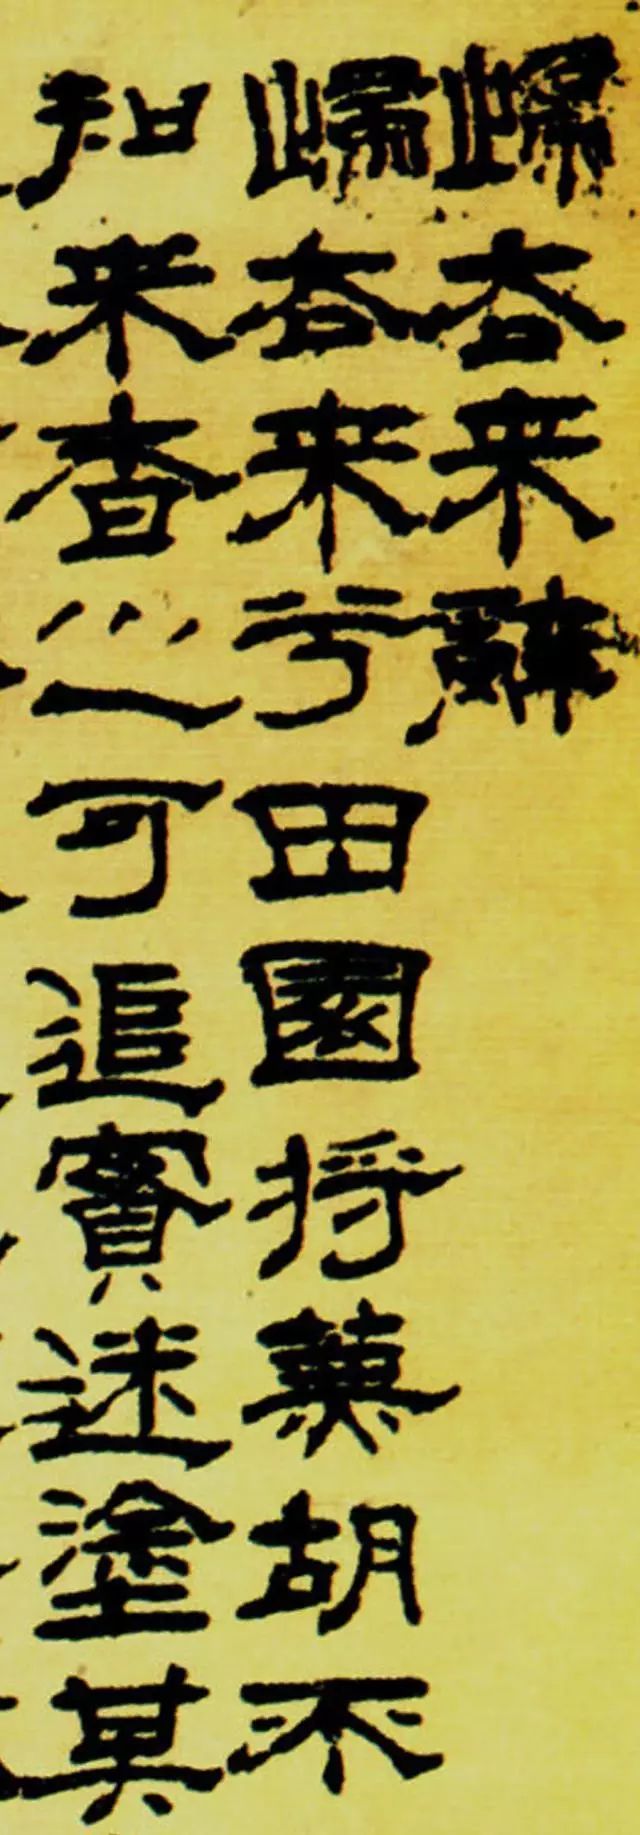 歸去來辭
歸去來兮田園將蕪胡不
知來者之可追實迷塗其